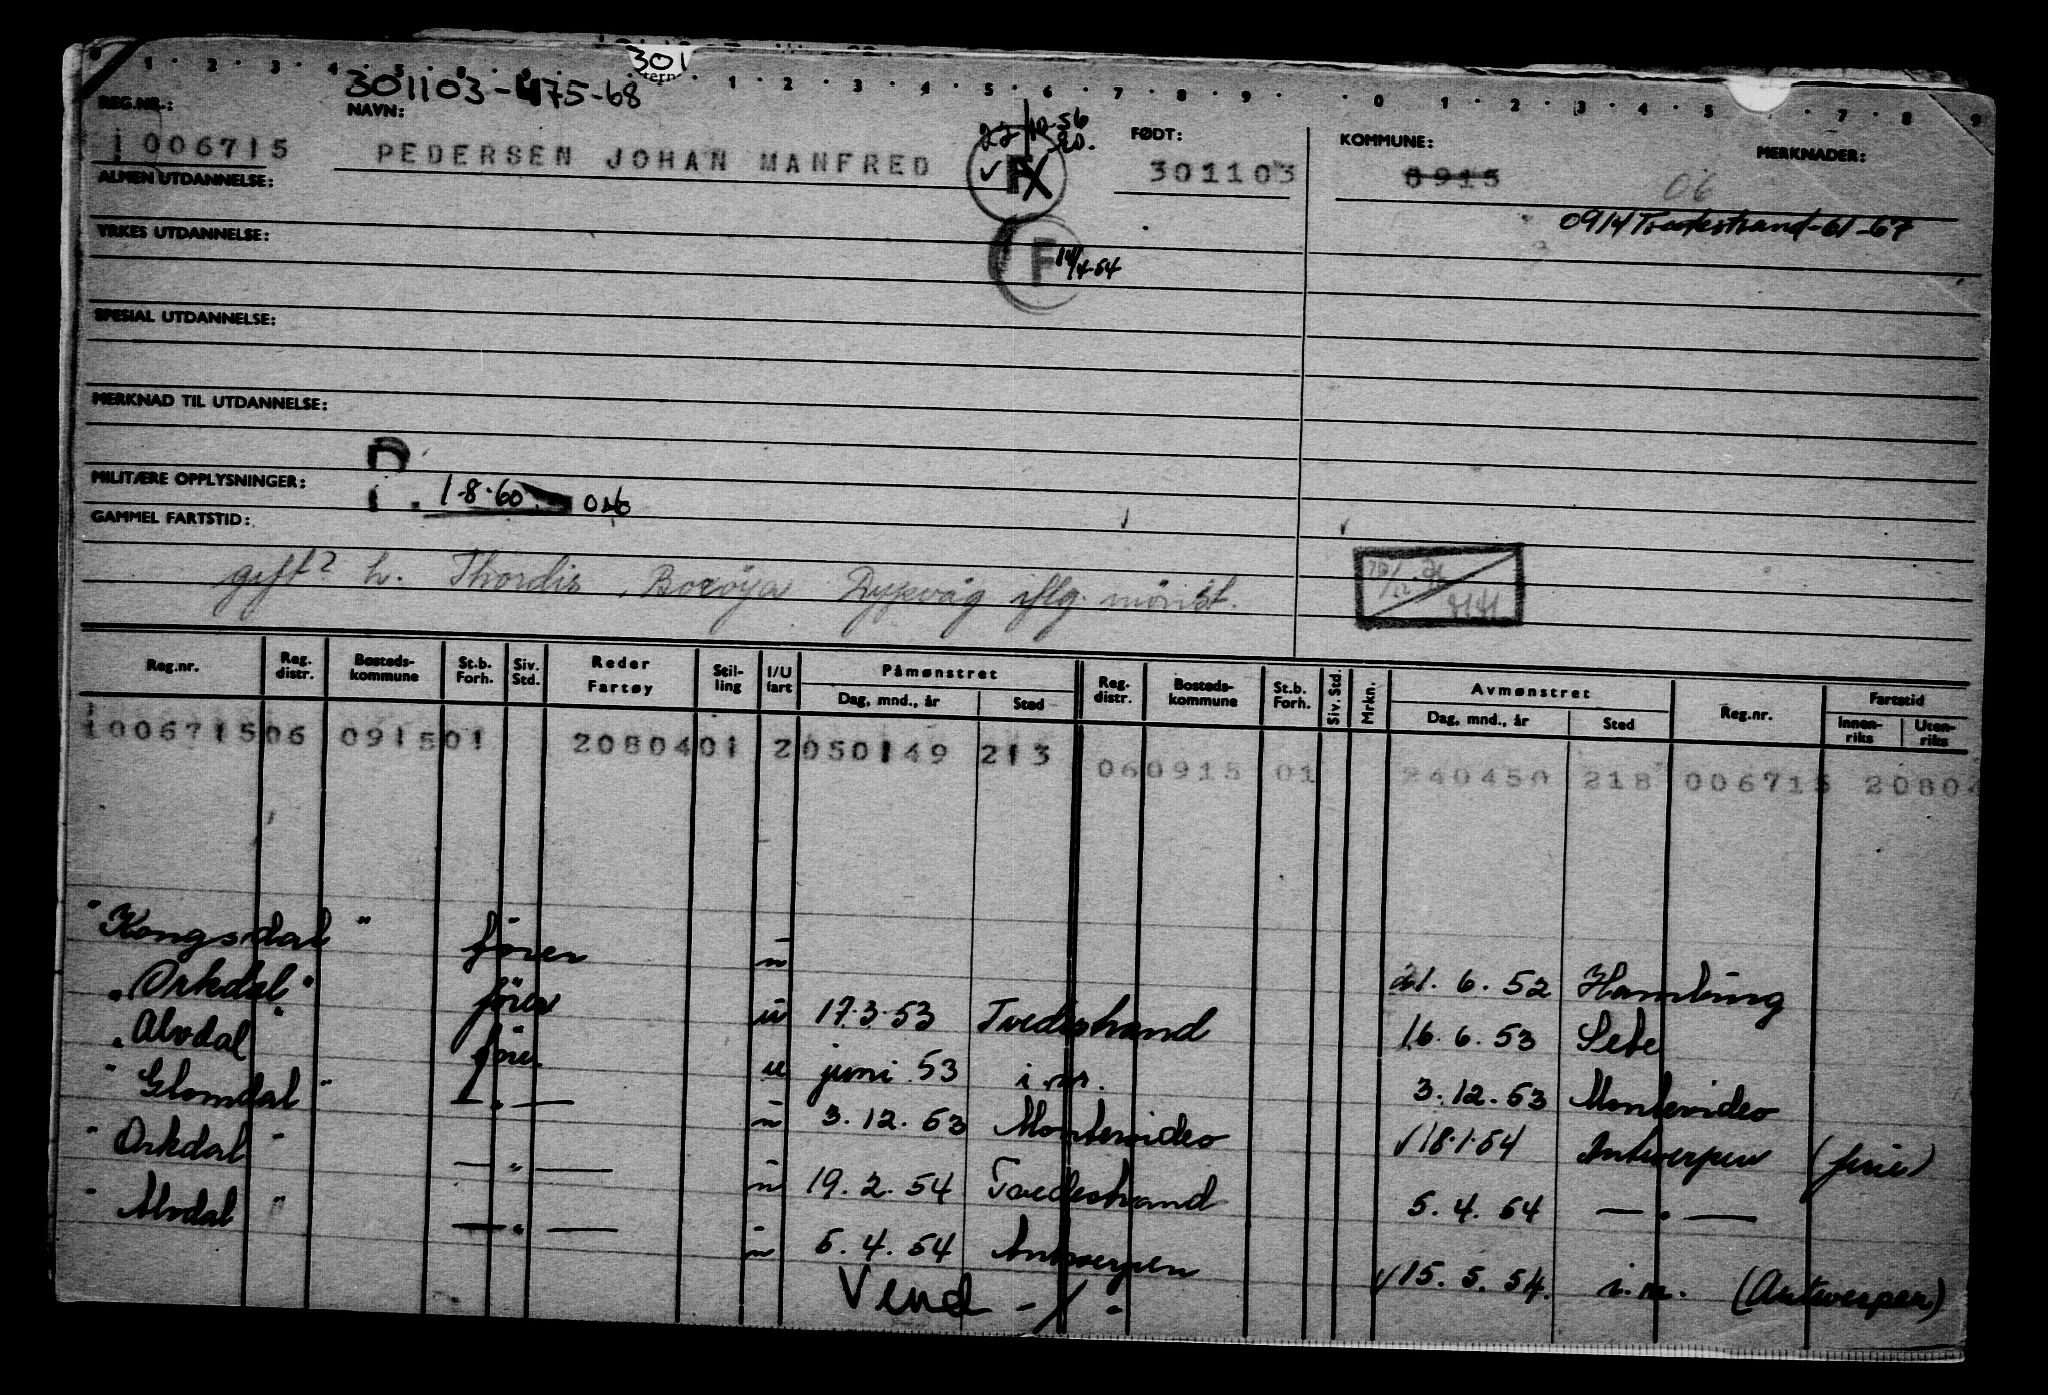 301
301103-475-68
REG.NR.:
NAVN:
FØDT:
KOMMUNE:
MERKNADER:
i 006715
PEDERSEN JOHAN MANFRED
301103
0915
06
0914 Tvedestrand-61-67
ALMEN UTDANNELSE:
YRKES UTDANNELSE:
F 14/4-54
SPESIAL UTDANNELSE:
MERKNAD TIL UTDANNELSE:
MILITÆRE OPPLYSNINGER:
1-8-60
GAMMEL FARTSTID:
gift h. Thordis, Borøya Dypvåg iflg. mønst.
Reg.nr. Reg. distr. Bosteds-kommune St.b. Forh. Siv. Std. Reder Fartøy Stil-ling I/U fart Påmønstret Dag, mnd., år Sted Reg. distr. Bosteds-kommune St.b. Forh. Siv. Std. Mrkn. Avmønstret Dag, mnd., år Sted Reg.nr. Fartstid Innen-riks Uten-riks
i006715 06 0915 01 20804 01 2 050149 213 06 0915 01 240450 218 006715 2080
"Kongsdal" fører u 21. 6. 52 Hamburg
"Orkdal" fører u 17.3.53 Tvedestrand 16. 6. 53 Sete
"Alvdal" fører u juni 53 i.m. 3. 12. 53 Montevideo
"Glomdal" — " — u 3. 12. 53 Montevideo √18.1.54 Antwerpen (ferie)
"Orkdal" — " — u 19. 2. 54 Tvedestrand 5. 4. 54 — " —
"Alvdal" — " — u 5. 4. 54 Antwerpen √15. 5. 54. i.m. (Antwerpen)
Vend -/-